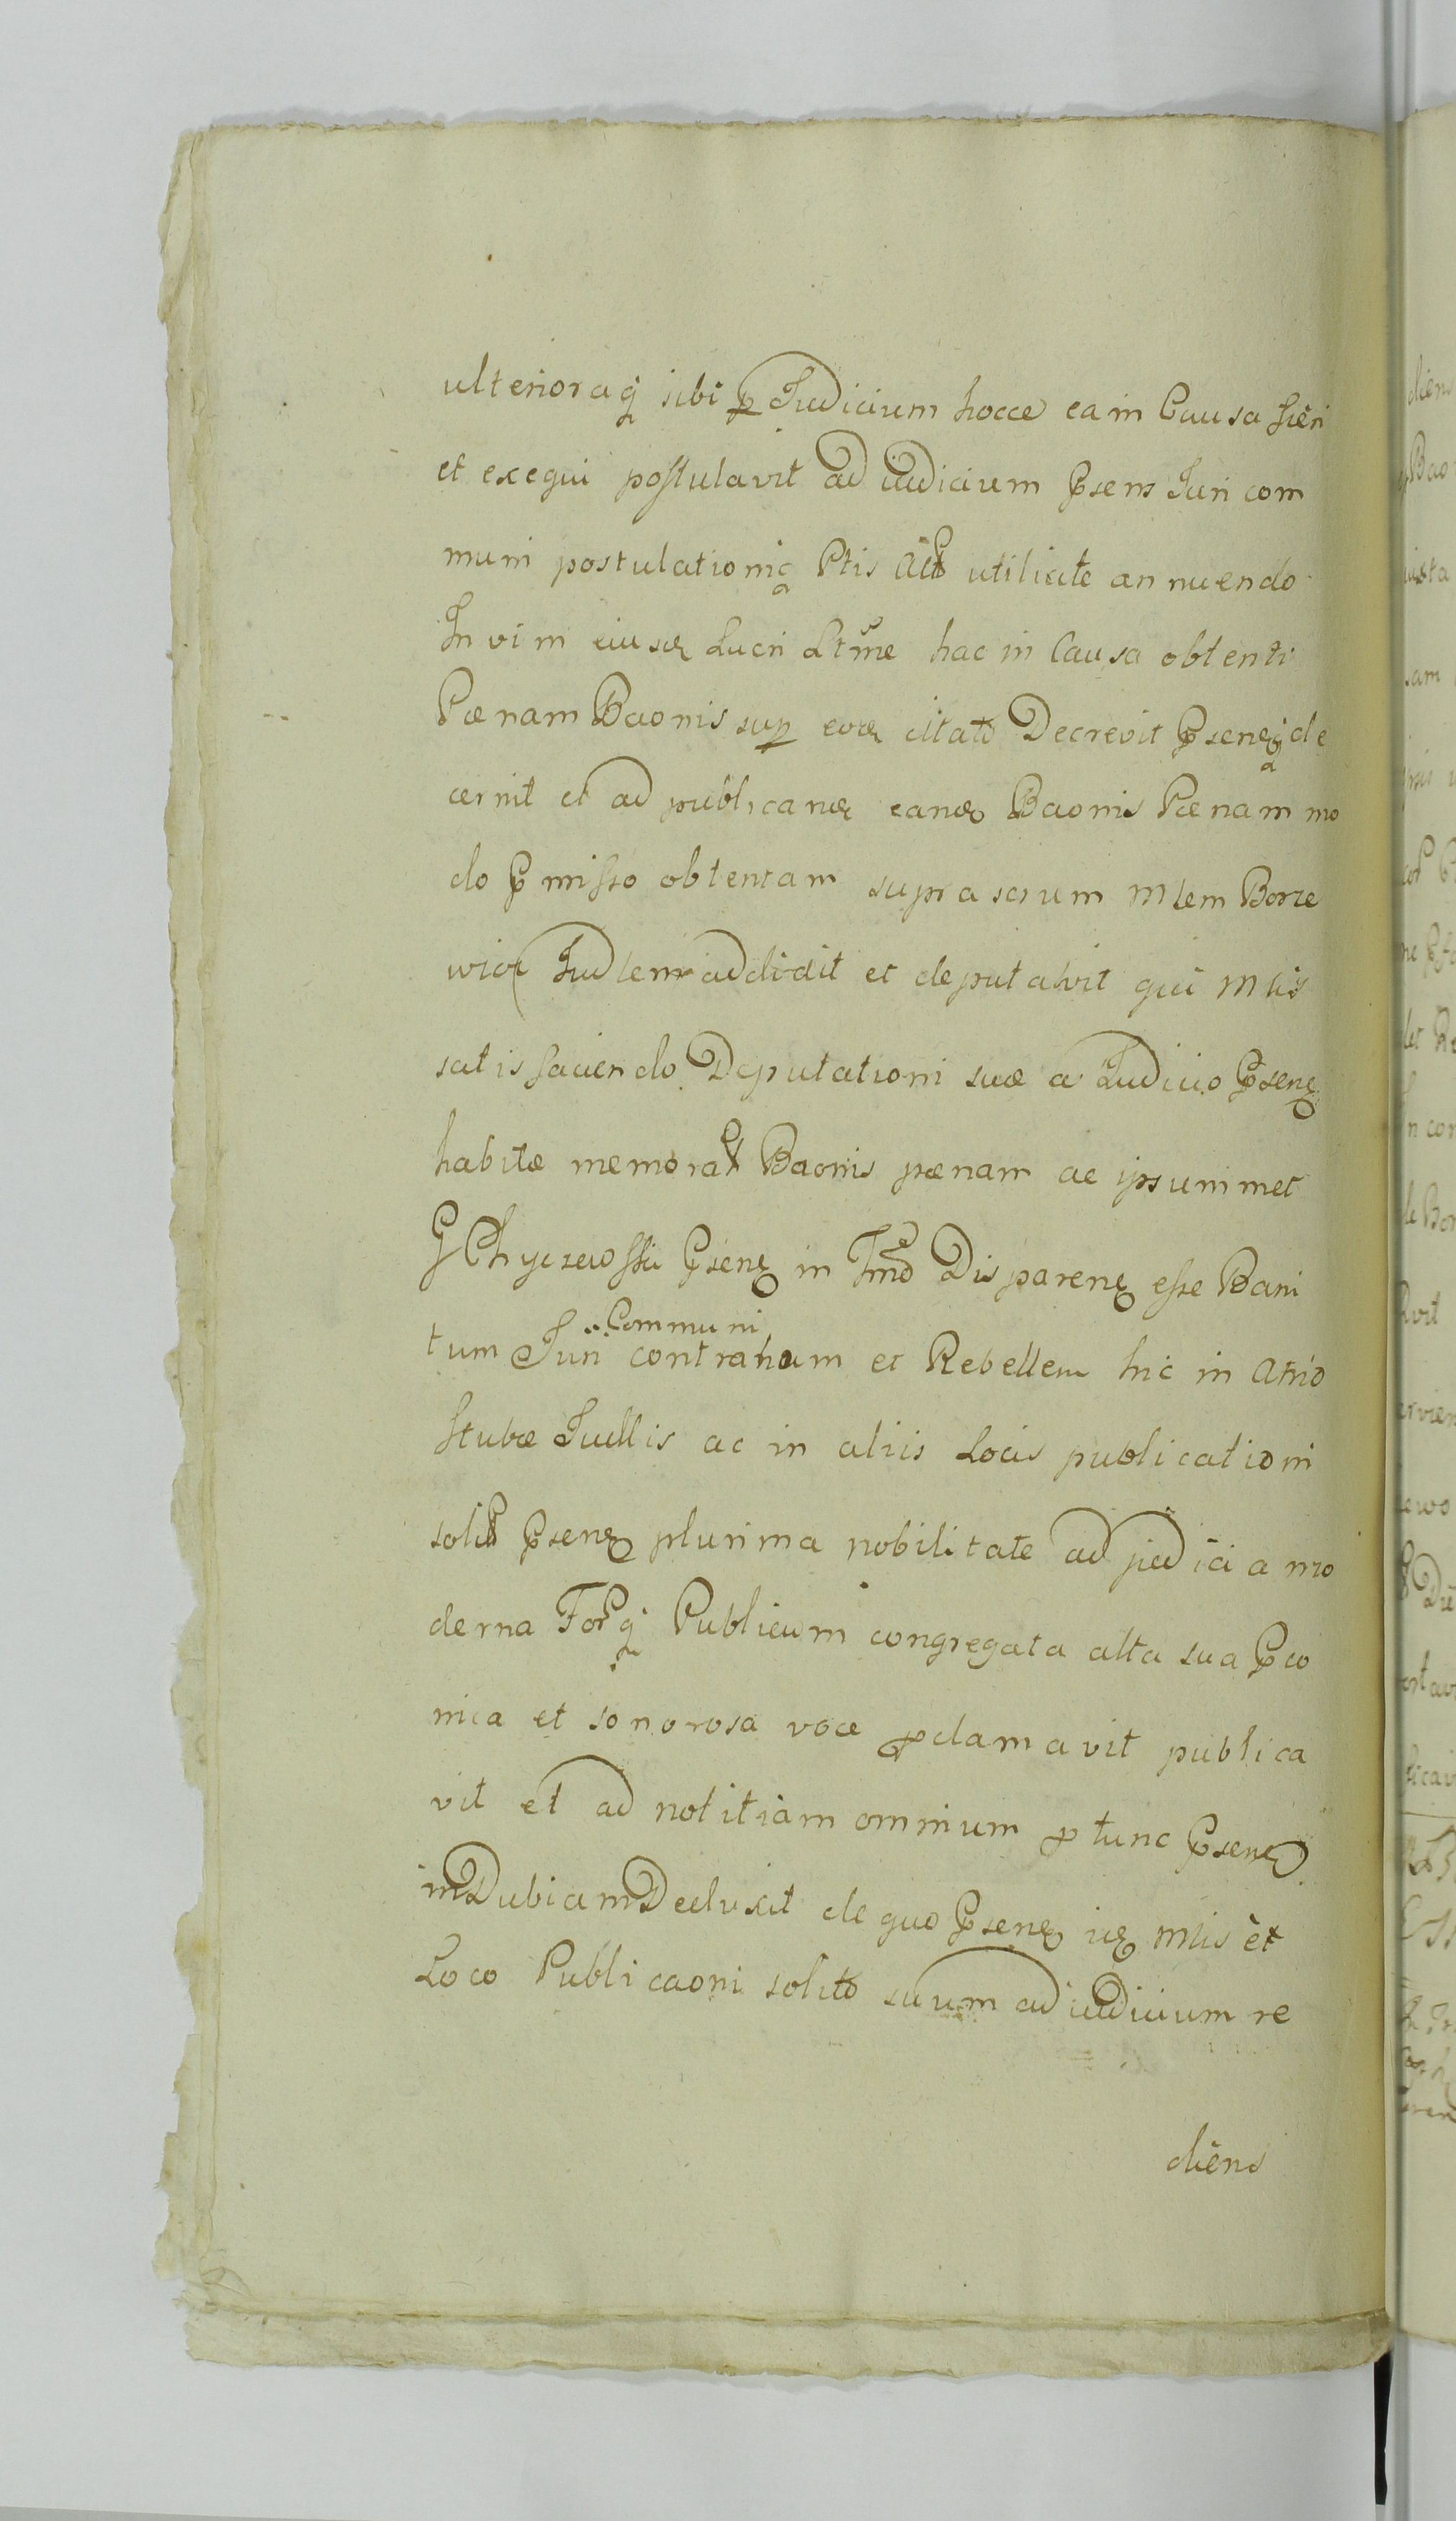 ulterioraq sibi p Judicium hocce ea in Causa fieri
et exequi postulavit ad iudicium Psens Juri com
muni postulationiq Ptis utilitate annuendo
In vim eiusd Lucri Ltime hac in Causa obtenti
Pænam Baonis sup eod citato Decrevit Psensq de
cernit et ad publicand eand Baonis Pænam mo
do Pmisso obtentam suprascrum Mlem Borze
wicz Judlem addidit et deputavit qui Mlis
satisfaciendo Deputationi suæ a Judicio Psen
habitæ memorat Baonis pænam ac ipsummet
G Chyczewski Psen in Tmo Disparen esse Bani
tum Juri Communi contrarium et Rebellem hic in atrio
stubæ Judlis ac in aliis Locis publicationi
solit Psen plurima nobilitate ad judicia mo
derna Forq Publicum congregata alta sua Pco
nica et sonorosa voce pclamavit publica
vit et ad notitiam omnium p tunc Psen
inDubiam Deduxit de quo Psen id Mlis et
Loco Publicaoni solito suum ad iudicium re
diens